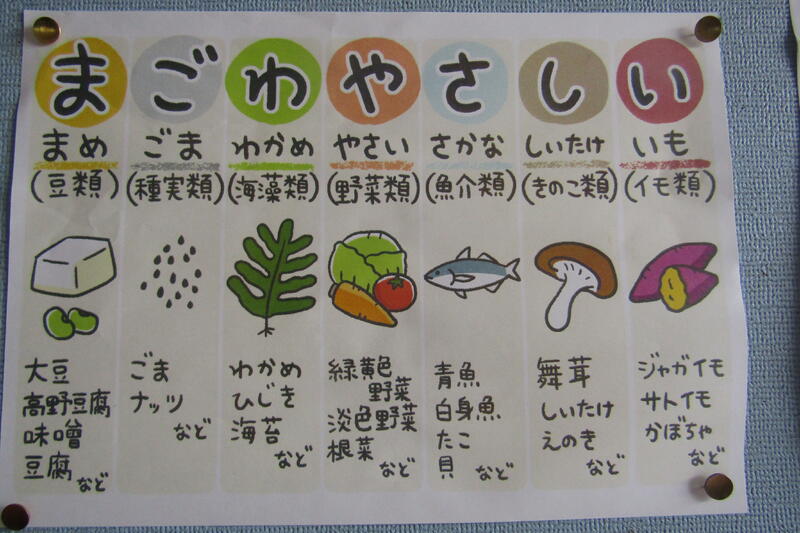 まごわやさしい
まめ ごま わかめ やさい さかな しいたけ いも
(豆類) (種実類) (海藻類) (野菜類) (魚介類) (きのこ類) (イモ類)
大豆
高野豆腐
味噌
豆腐 など
ごま
ナッツ
など
わかめ
ひじき
海苔
など
緑黄色
野菜
淡色野菜
根菜
など
青魚
白身魚
たこ
貝 など
舞茸
しいたけ
えのき
など
ジャガイモ
サトイモ
かぼちゃ
など